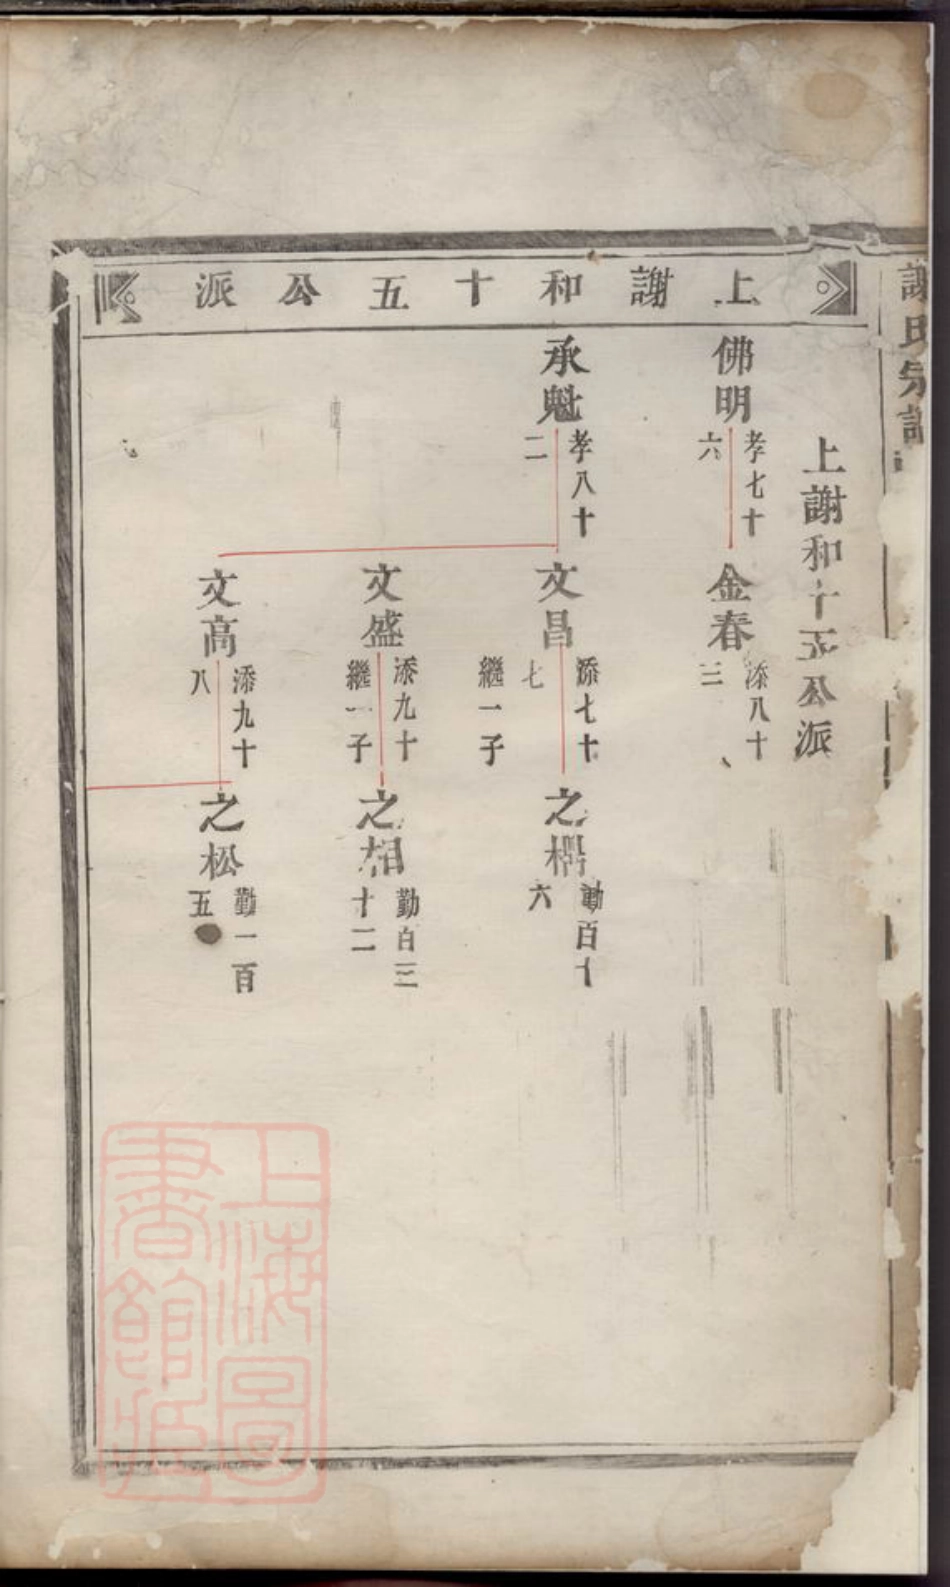 謝氏宗譜
上謝和十五公派
上謝和十五公派
佛明
孝七十
六
金春
添八十
三
承魁
孝八十
二
文昌
添七十
七
繼一子
之
勤百十
六
文盛
添九十
繼一子
之相
勤百三
十二
文高
添九十
八
之松
勤一百
五
上海圖
書館藏